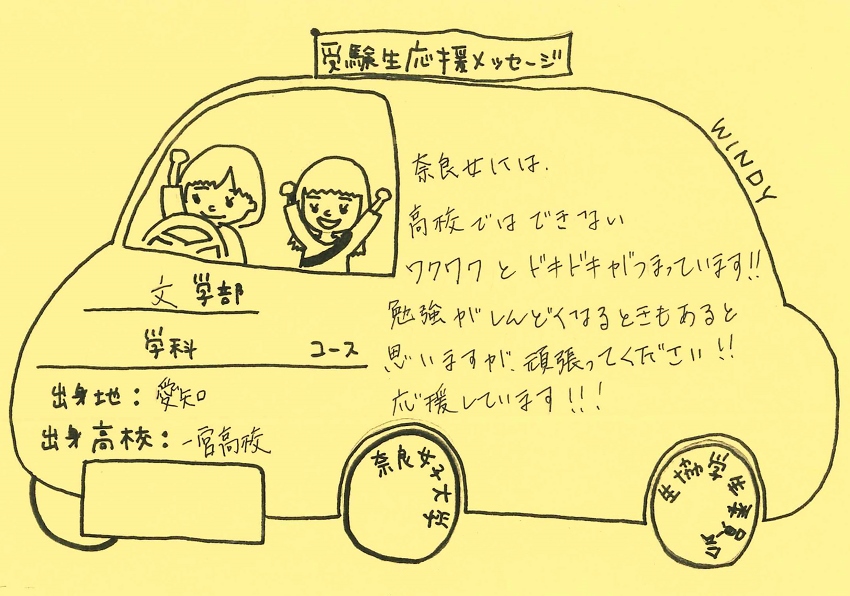 受験生応援メッセージ
WINDY
奈良女には、
高校ではできない
ワクワクとドキドキがつまっています!!
勉強がしんどくなるときもあると
思いますが、頑張ってください!!
応援しています!!!
文学部
学科 コース
出身地:愛知
出身高校:一宮高校
奈良女子大学
生協学生委員会